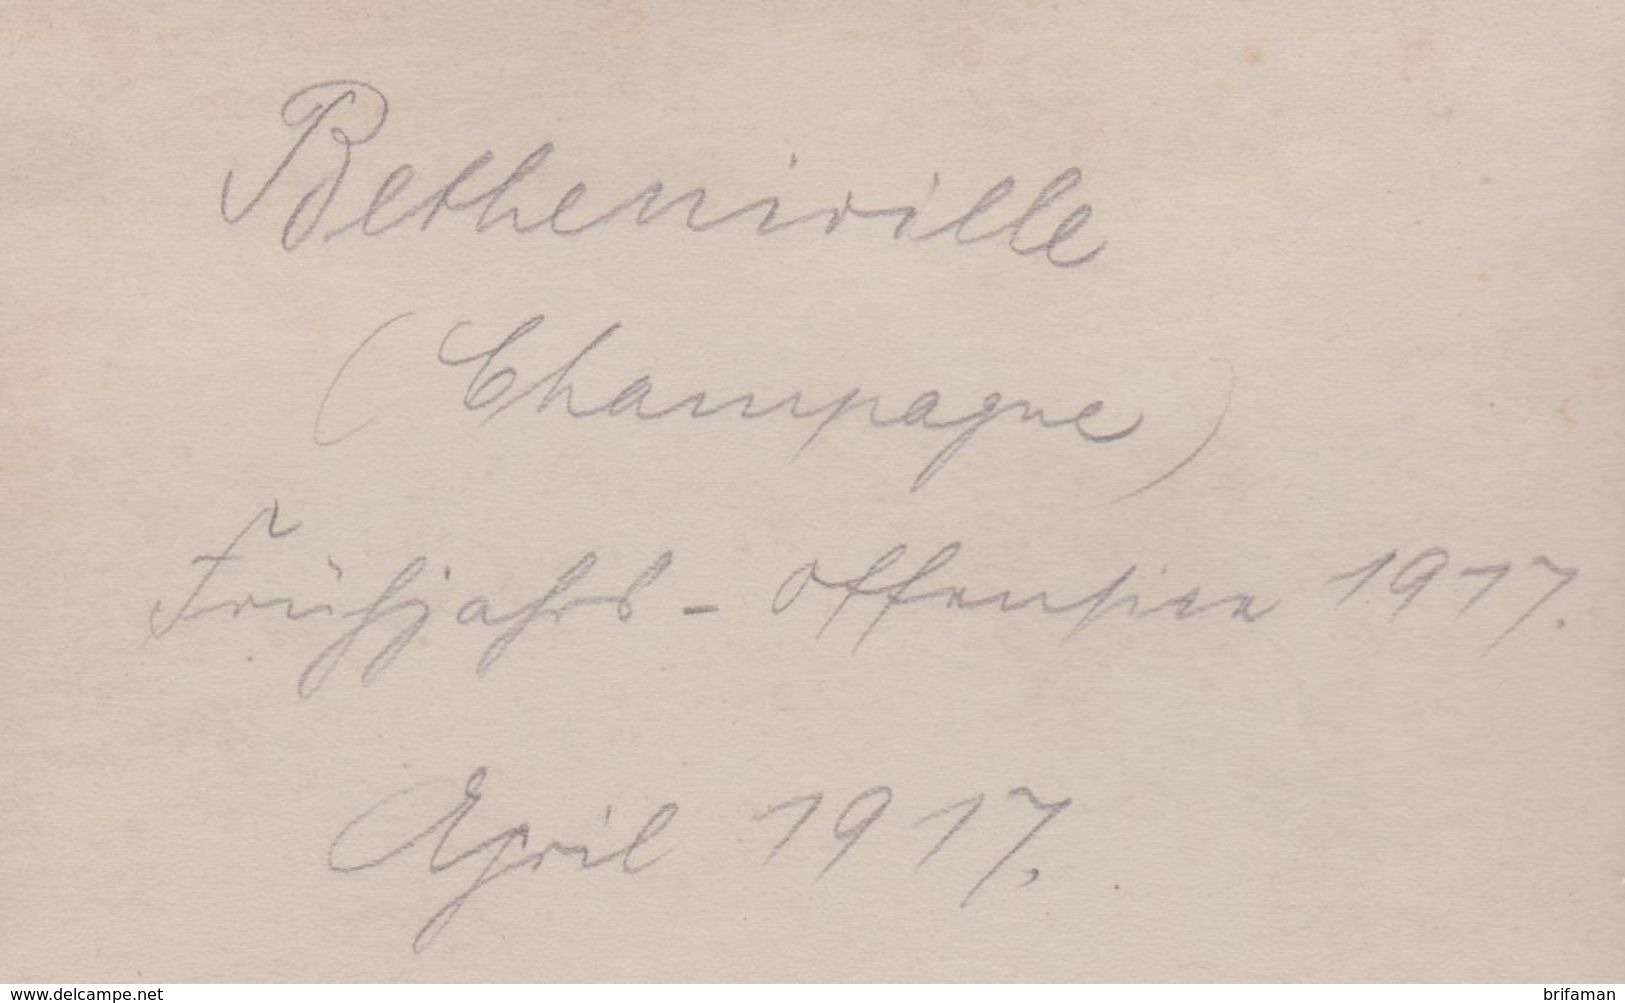 Betheniville
(Champagne)
Frühjahrs - Offensive 1917.
April 1917.
www.delcampe.net
brifaman